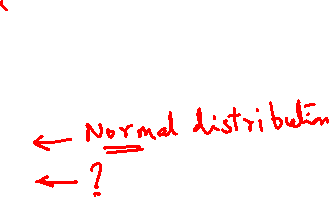 ← Normal distribution
← ?